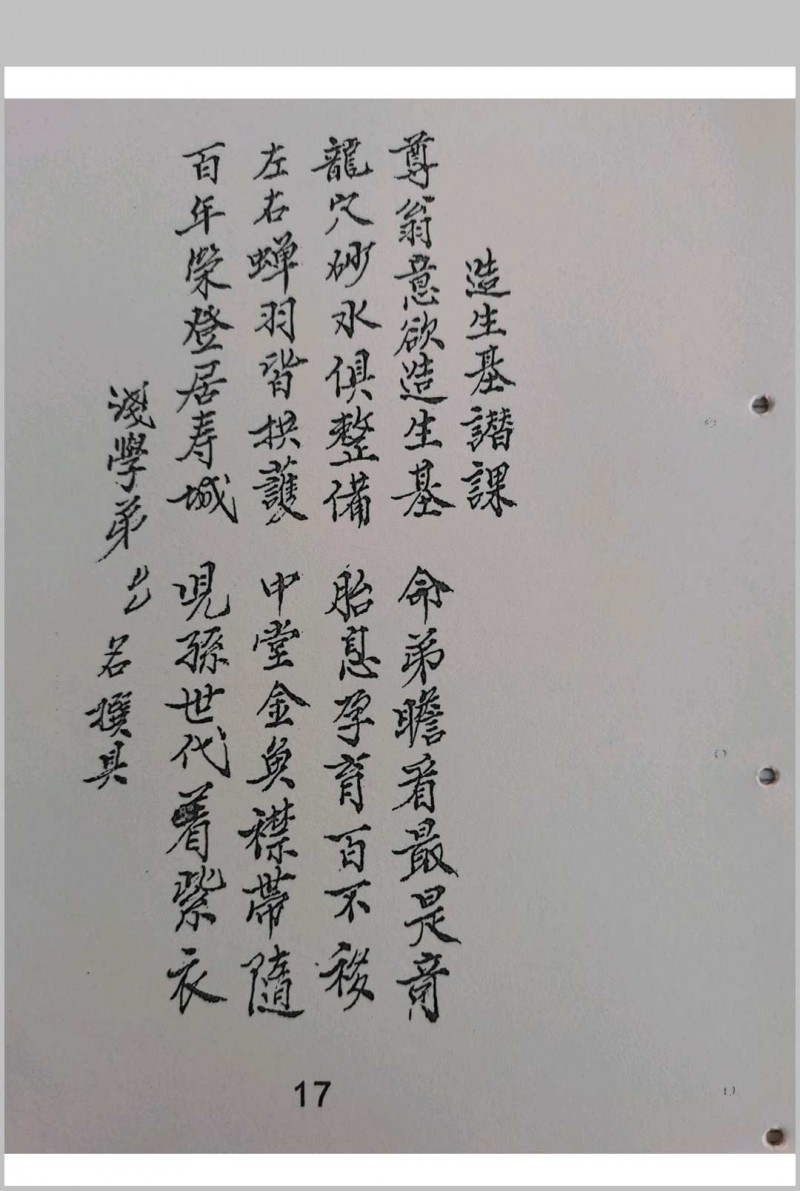 造生基譖課
尊翁意欲造生基　命弟瞻看最是奇
龍穴砂水俱整備　胎息孕育百不移
左右蝉羽皆拱護　中堂金魚襟帶隨
百年榮登居寿城　児孫世代着紫衣
淺學弟　名撰具
17